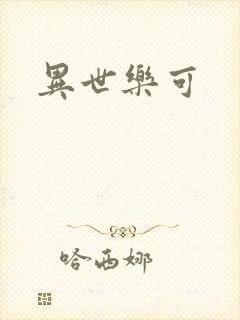 異世樂可
哈西娜